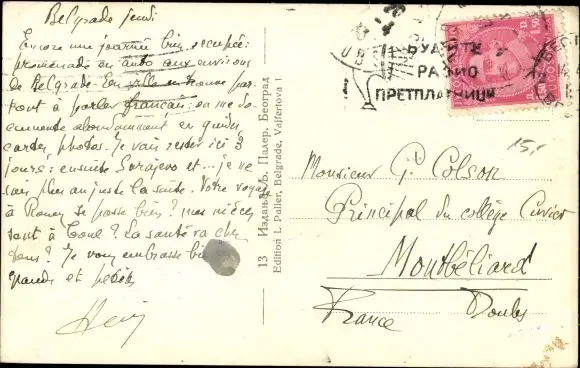 Belgrade jeudi
Encore une journée bien occupée:
promenade en auto aux environs
de Belgrade. En ville on trouve par-
tout à parler français: on me do-
cumente abondamment en guides
cartes photos. Je vais rester ici 3
jours: ensuite Sarajevo et... je ne
sais plus au juste la suite. Votre voyage
à Rouen se passe bien? mes nièces
sont à Toul? La santé va chez
tous? Je vous embrasse bien
grands et petits
Henri
13 Издање Љ. Палер, Београд
Edition L. Paller, Belgrade, Vaifertova 1
БУДИТЕ
РАДИО
ПРЕТПЛАТНИЦИ
1.50
15,-
Monsieur G. Colson
Principal du collège Cuvier
Montbéliard
France Doubs